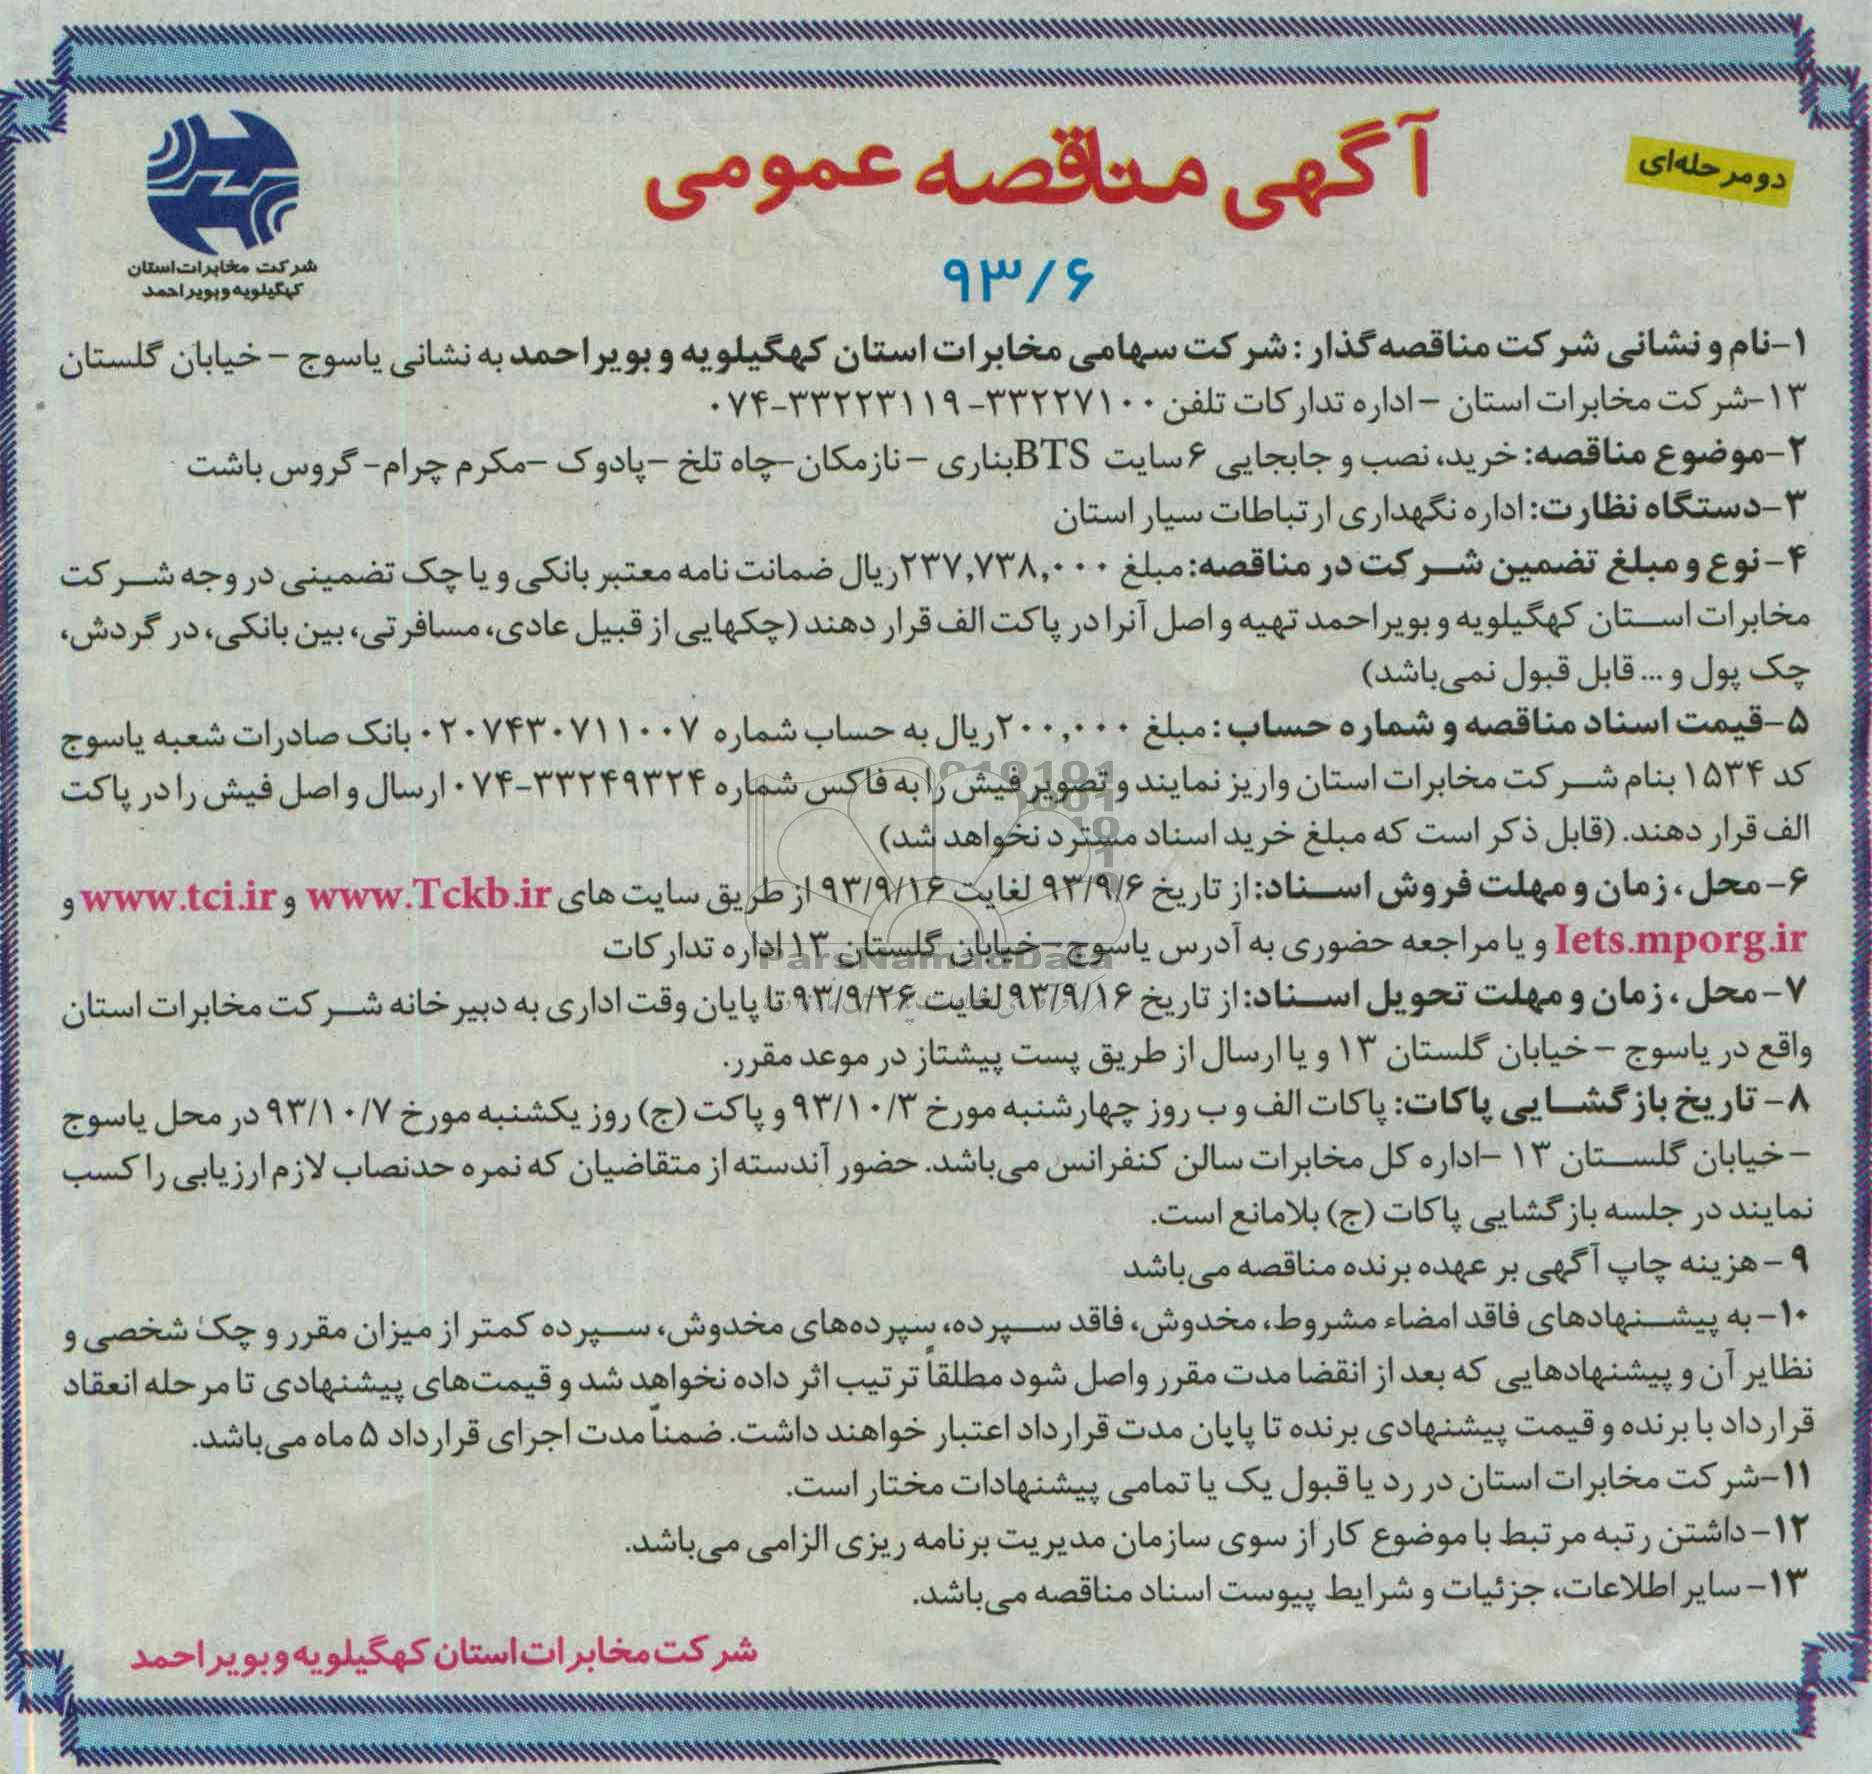 دو مرحله‌ای
آگهی مناقصه عمومی
۹۳/۶
شرکت مخابرات استان
کهگیلویه و بویراحمد
۱-نام و نشانی شرکت مناقصه گذار: شرکت سهامی مخابرات استان کهگیلویه و بویراحمد به نشانی یاسوج – خیابان گلستان
۱۳-شرکت مخابرات استان – اداره تدارکات تلفن ۳۳۲۲۷۱۰۰- ۳۳۲۲۳۱۱۹-۰۷۴
۲-موضوع مناقصه: خرید، نصب و جابجایی ۶ سایت BTS بناری – نازمکان-چاه تلخ –پادوک –مکرم چرام- گروس باشت
۳-دستگاه نظارت: اداره نگهداری ارتباطات سیار استان
۴- نوع و مبلغ تضمین شرکت در مناقصه: مبلغ ۲۳۷,۷۳۸,۰۰۰ ریال ضمانت نامه معتبر بانکی و یا چک تضمینی در وجه شرکت
مخابرات استان کهگیلویه و بویراحمد تهیه و اصل آنرا در پاکت الف قرار دهند (چکهایی از قبیل عادی، مسافرتی، بین بانکی، در گردش،
چک پول و ... قابل قبول نمی‌باشد)
۵-قیمت اسناد مناقصه و شماره حساب : مبلغ ۲۰۰,۰۰۰ ریال به حساب شماره ۰۲۰۷۴۳۰۷۱۱۰۰۷ بانک صادرات شعبه یاسوج
کد ۱۵۳۴ بنام شرکت مخابرات استان واریز نمایند و تصویر فیش را به فاکس شماره ۳۳۲۴۹۳۲۴-۰۷۴ ارسال و اصل فیش را در پاکت
الف قرار دهند. (قابل ذکر است که مبلغ خرید اسناد مسترد نخواهد شد)
۶- محل ، زمان و مهلت فروش اسناد: از تاریخ ۹۳/۹/۶ لغایت ۹۳/۹/۱۶ از طریق سایت های www.Tckb.ir و www.tci.ir و
Iets.mporg.ir و یا مراجعه حضوری به آدرس یاسوج-خیابان گلستان ۱۳ اداره تدارکات
ParsNamadData
۷- محل ، زمان و مهلت تحویل اسناد: از تاریخ ۹۳/۹/۱۶ لغایت ۹۳/۹/۲۶ تا پایان وقت اداری به دبیرخانه شرکت مخابرات استان
واقع در یاسوج – خیابان گلستان ۱۳ و یا ارسال از طریق پست پیشتاز در موعد مقرر.
۸- تاریخ بازگشایی پاکات: پاکات الف و ب روز چهارشنبه مورخ ۹۳/۱۰/۳ و پاکت (ج) روز یکشنبه مورخ ۹۳/۱۰/۷ در محل یاسوج
– خیابان گلستان ۱۳ –اداره کل مخابرات سالن کنفرانس می‌باشد. حضور آندسته از متقاضیان که نمره حدنصاب لازم ارزیابی را کسب
نمایند در جلسه بازگشایی پاکات (ج) بلامانع است.
۹ - هزینه چاپ آگهی بر عهده برنده مناقصه می‌باشد
۱۰- به پیشنهادهای فاقد امضاء مشروط، مخدوش، فاقد سپرده، سپرده‌های مخدوش، سپرده کمتر از میزان مقرر و چک شخصی و
نظایر آن و پیشنهادهایی که بعد از انقضا مدت مقرر واصل شود مطلقاً ترتیب اثر داده نخواهد شد و قیمت‌های پیشنهادی تا مرحله انعقاد
قرارداد با برنده و قیمت پیشنهادی برنده تا پایان مدت قرارداد اعتبار خواهند داشت. ضمناً مدت اجرای قرارداد ۵ ماه می‌باشد.
۱۱-شرکت مخابرات استان در رد یا قبول یک یا تمامی پیشنهادات مختار است.
۱۲- داشتن رتبه مرتبط با موضوع کار از سوی سازمان مدیریت برنامه ریزی الزامی می‌باشد.
۱۳- سایر اطلاعات، جزئیات و شرایط پیوست اسناد مناقصه می‌باشد.
شرکت مخابرات استان کهگیلویه و بویراحمد